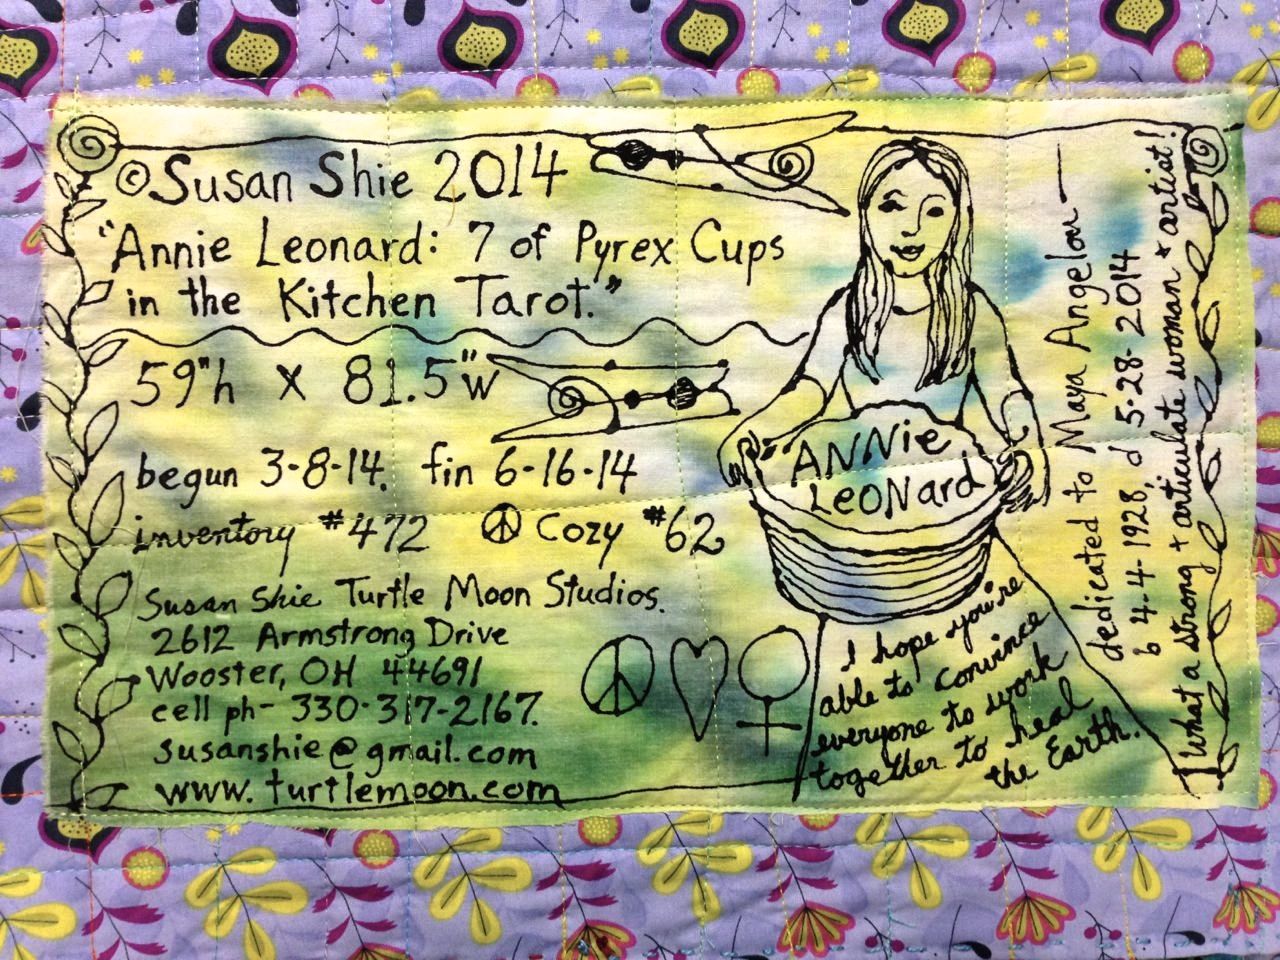 ©Susan Shie 2014
"Annie Leonard: 7 of Pyrex Cups
in the Kitchen Tarot."
59"h x 81.5"w
begun 3-8-14. fin 6-16-14
inventory #472 ☮ Cozy #62
Susan Shie Turtle Moon Studios.
2612 Armstrong Drive
Wooster, OH 44691
cell ph- 330-317-2167.
susanshie@gmail.com
www.turtlemoon.com
ANNie
LeoNard
I hope you're
able to convince
everyone to work
together to heal
the Earth.
dedicated to Maya Angelou—
b 4-4-1928, d 5-28-2014
What a strong + articulate woman + artist!